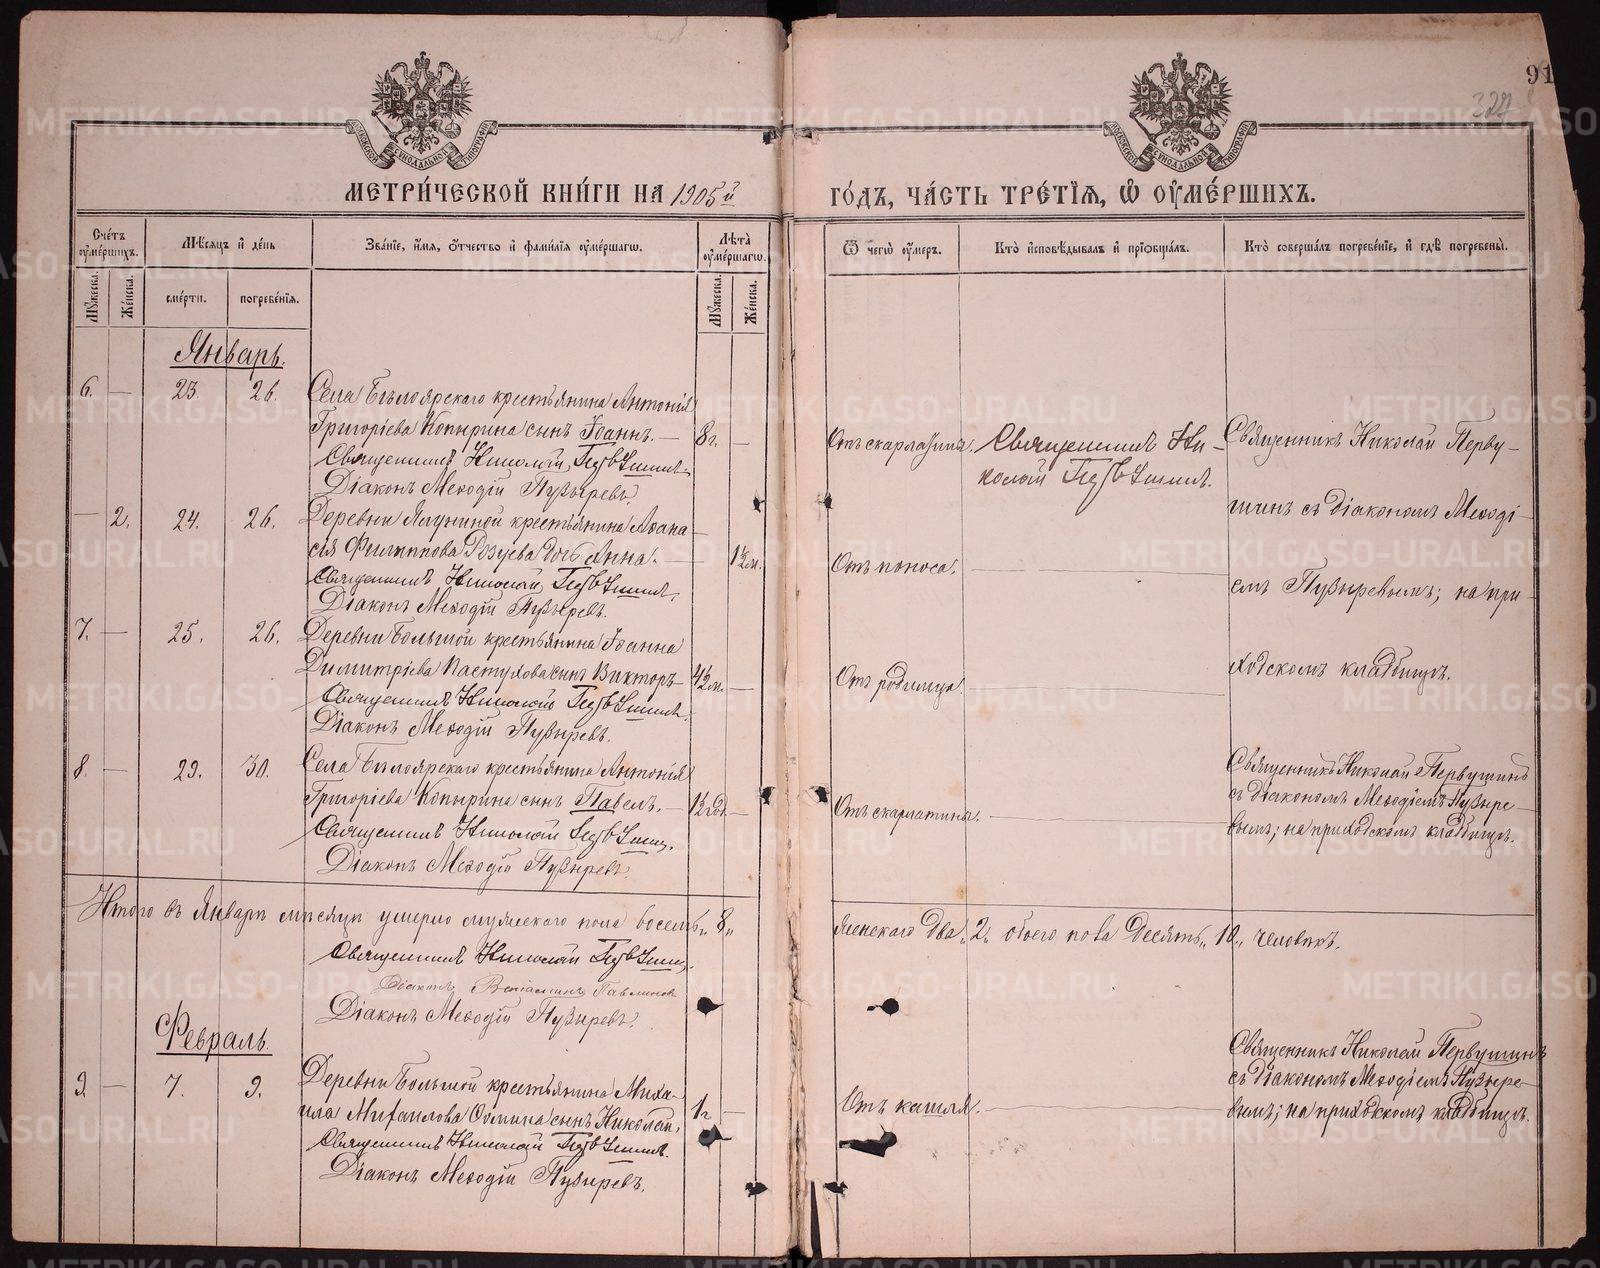 91
322
МОСКОВСКОЙ СѴНОДАЛЬНОЙ ТИПОГРАФІИ
МОСКОВСКОЙ СѴНОДАЛЬНОЙ ТИПОГРАФІИ
МЕТРИ́ЧЕСКОЙ КНИ́ГИ НА 1905й
ГО́ДЪ, ЧА́СТЬ ТРЕ́ТІѦ, Ѡ ОУ҆МЕ́РШИХЪ.
Сче́тъ оу҆ме́ршихъ.
Мꙋ́жеска.
Же́нска.
Мѣ́сѧцъ и҆ де́нь
сме́рти.
погребе́нїѧ.
Зва́нїе, и҆́мѧ, ѻ҆́тчество и҆ фами́лїѧ оу҆ме́ршагѡ.
Лѣ́та оу҆ме́ршагѡ.
Мꙋ́жеска.
Же́нска.
Ѿ чегѡ̀ оу҆́меръ.
Кто̀ и҆сповѣ́дывалъ и҆ прїѻбща́лъ.
Кто̀ соверша́лъ погребе́нїе, и҆ гдѣ̀ погребены̀.
Январь.
6. — 23. 26. Села Бѣлоярскаго крестьянина Антонія
Григоріева Копырина сынъ Іоаннъ. — 8 г. —
Священникъ Николай Первушинъ
Діаконъ Меѳодій Пузыревъ.
Отъ скарлатины.
Священникъ Ни-
колай Первушинъ.
Священникъ Николай Перву-
шинъ съ діакономъ Меѳоді-
емъ Пузыревымъ; на при-
ходскомъ кладбищѣ.
— 2. 24. 26. Деревни Ялуниной крестьянина Аѳана-
сія Филиппова дочь Анна. — 1½ м.
Священникъ Николай Первушинъ.
Діаконъ Меѳодій Пузыревъ.
Отъ поноса.
7. — 25. 26. Деревни Большой крестьянина Іоанна
Димитріева Пастухова сынъ Викторъ 4½ м. —
Священникъ Николай Первушинъ.
Діаконъ Меѳодій Пузыревъ.
Отъ родимца.
8. — 29. 30. Села Бѣлоярскаго крестьянина Антонія
Григоріева Копырина сынъ Павелъ. — 1½ год. —
Священникъ Николай Первушинъ.
Діаконъ Меѳодій Пузыревъ.
Отъ скарлатины.
Священникъ Николай Первушинъ
съ діакономъ Меѳодіемъ Пузыре-
вымъ; на приходскомъ кладбищѣ.
Итого въ Январѣ мѣсяцѣ умерло мужескаго пола восемь „8„
женскаго два „2„ обоего пола десять „10„ человѣкъ.
Священникъ Николай Первушинъ.
Діаконъ Веніаминъ Павлиновъ
Діаконъ Меѳодій Пузыревъ.
Февраль.
9 — 7. 9. Деревни Большой крестьянина Миха-
ила Михаилова сынъ Николай. 1 г —
Священникъ Николай Первушинъ.
Діаконъ Меѳодій Пузыревъ.
Отъ кашля.
Священникъ Николай Первушинъ
съ діакономъ Меѳодіемъ Пузыре-
вымъ; на приходскомъ кладбищѣ.
METRIKI.GASO-URAL.RU